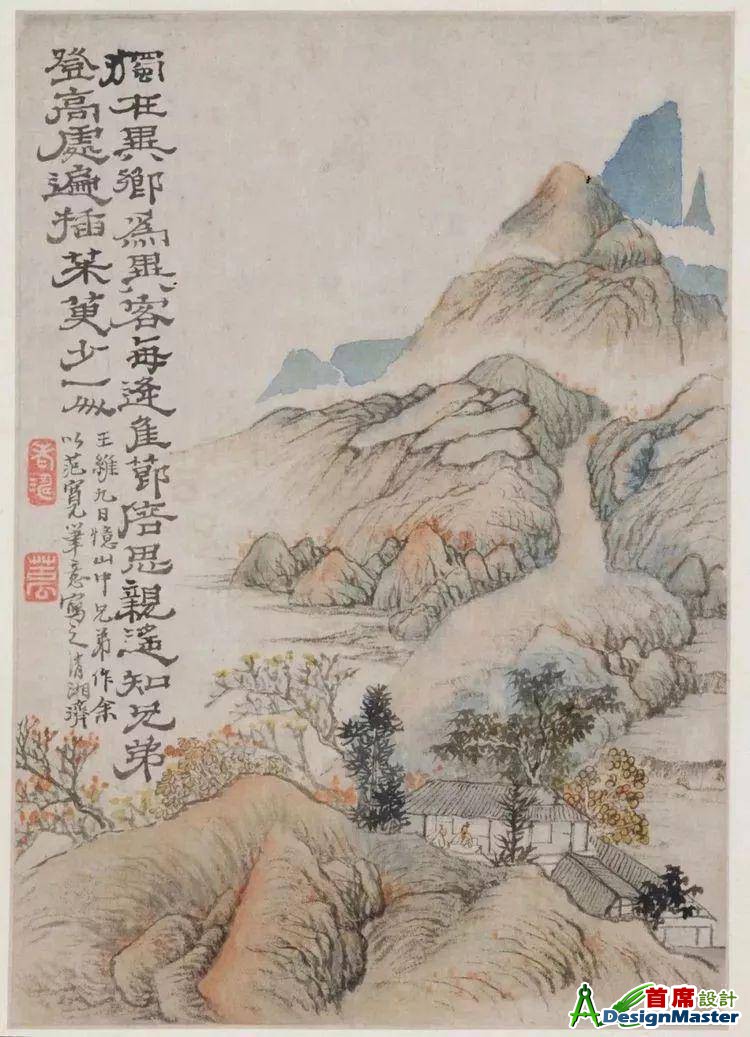 獨在異鄉為異客每逢佳節倍思親遙知兄弟
登高處遍插茱萸少一人
王維九日憶山中兄弟作余
以范寬筆意寫之清湘濟
首席設計
ADesignMaster